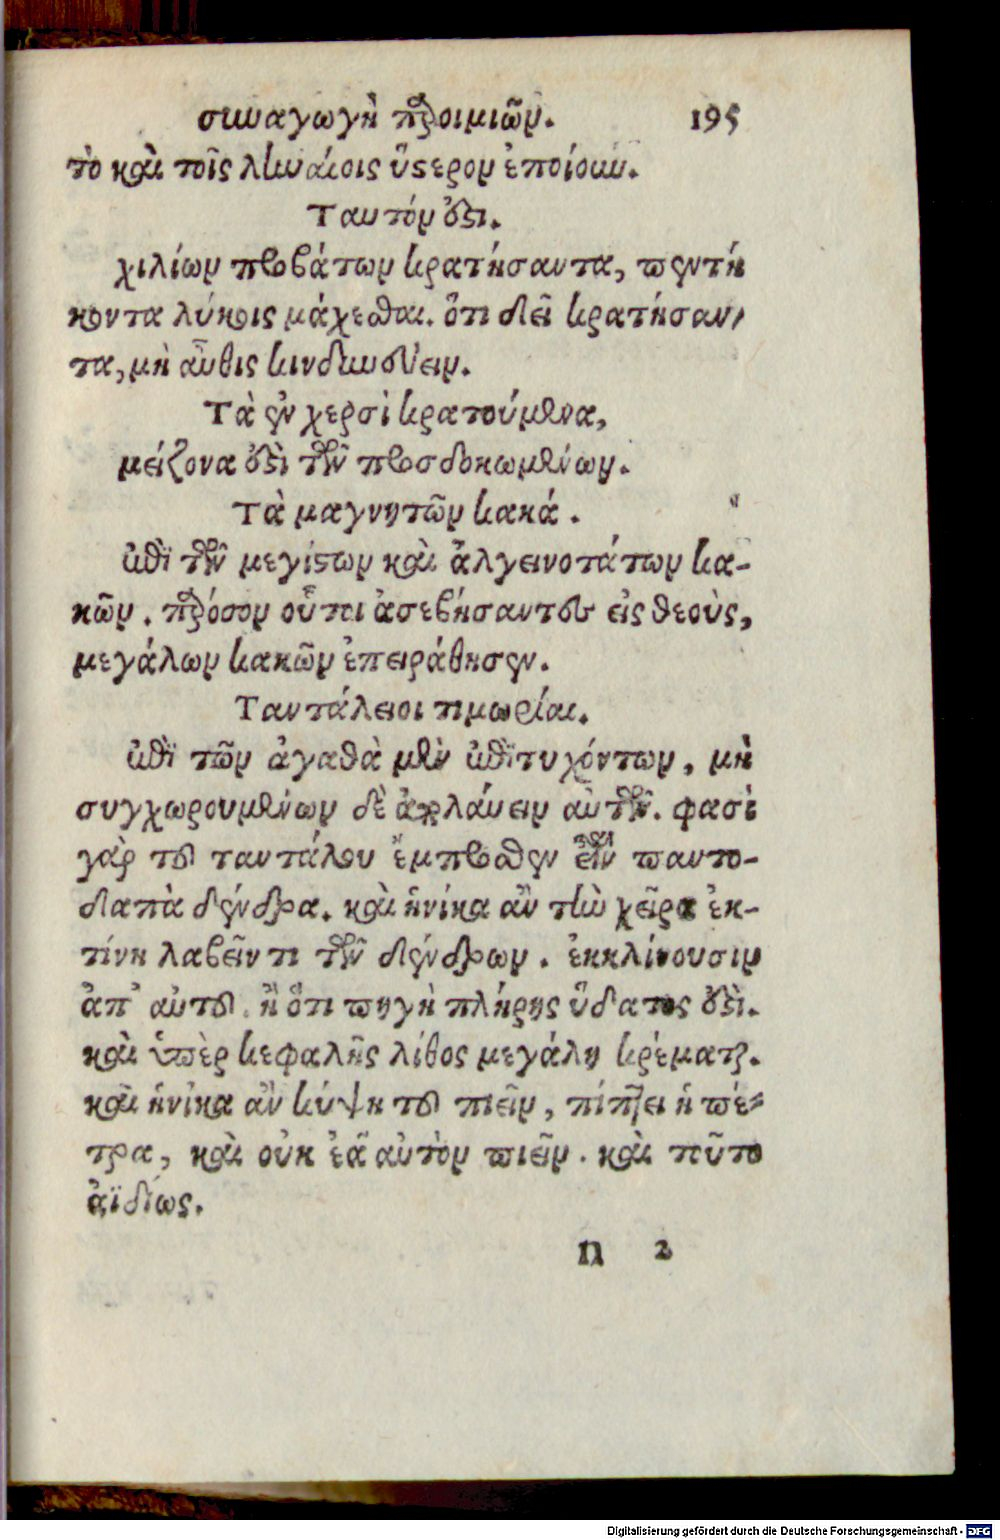 συναγωγὴ παροιμιῶν. 195
τὸ καὶ τοῖς ληναίοις ὕστερον ἐποίουν.
Ταυτόν ἐστι.
χιλίων προβάτων κρατήσαντα, πεντή
κοντα λύκοις μάχεσθαι. ὅτι δεῖ κρατήσαν/
τα, μὴ αὖθις κινδυνεύειν.
Τὰ ἐν χερσὶ κρατούμενα,
μείζονα ἐστὶ τῶν προσδοκωμένων.
Τὰ μαγνητῶν κακά.
ἐπὶ τῶν μεγίστων καὶ ἀλγεινοτάτων κα-
κῶν. παρόσον οὗτοι ἀσεβήσαντες εἰς θεοὺς,
μεγάλων κακῶν ἐπειράθησεν.
Ταντάλειοι τιμωρίαι.
ἐπὶ τῶν ἀγαθὰ μὲν ἐπιτυχόντων, μὴ
συγχωρουμένων δὲ ἀπολάυειν αὐτῶν. φασὶ
γὰρ τοῦ ταντάλου ἔμπροσθεν εἶναι παντο-
δαπὰ δένδρα. καὶ ἡνίκα ἂν τὴν χεῖρα ἐκ-
τίνῃ λαβεῖν τι τῶν δένδρων. ἐκκλίνουσιν
ἀπ' αὐτοῦ. ἢ ὅτι πηγὴ πλήρης ὕδατος ἐστὶ.
καὶ ὑπὲρ κεφαλῆς λίθος μεγάλη κρέμαται.
καὶ ἡνίκα ἂν κύψῃ τοῦ πιεῖν, πίπτει ἡ πέ-
τρα, καὶ οὐκ ἐᾷ αὐτὸν πιεῖν. καὶ τοῦτο
ἀϊδίως.
n 2
Digitalisierung gefördert durch die Deutsche Forschungsgemeinschaft - DFG